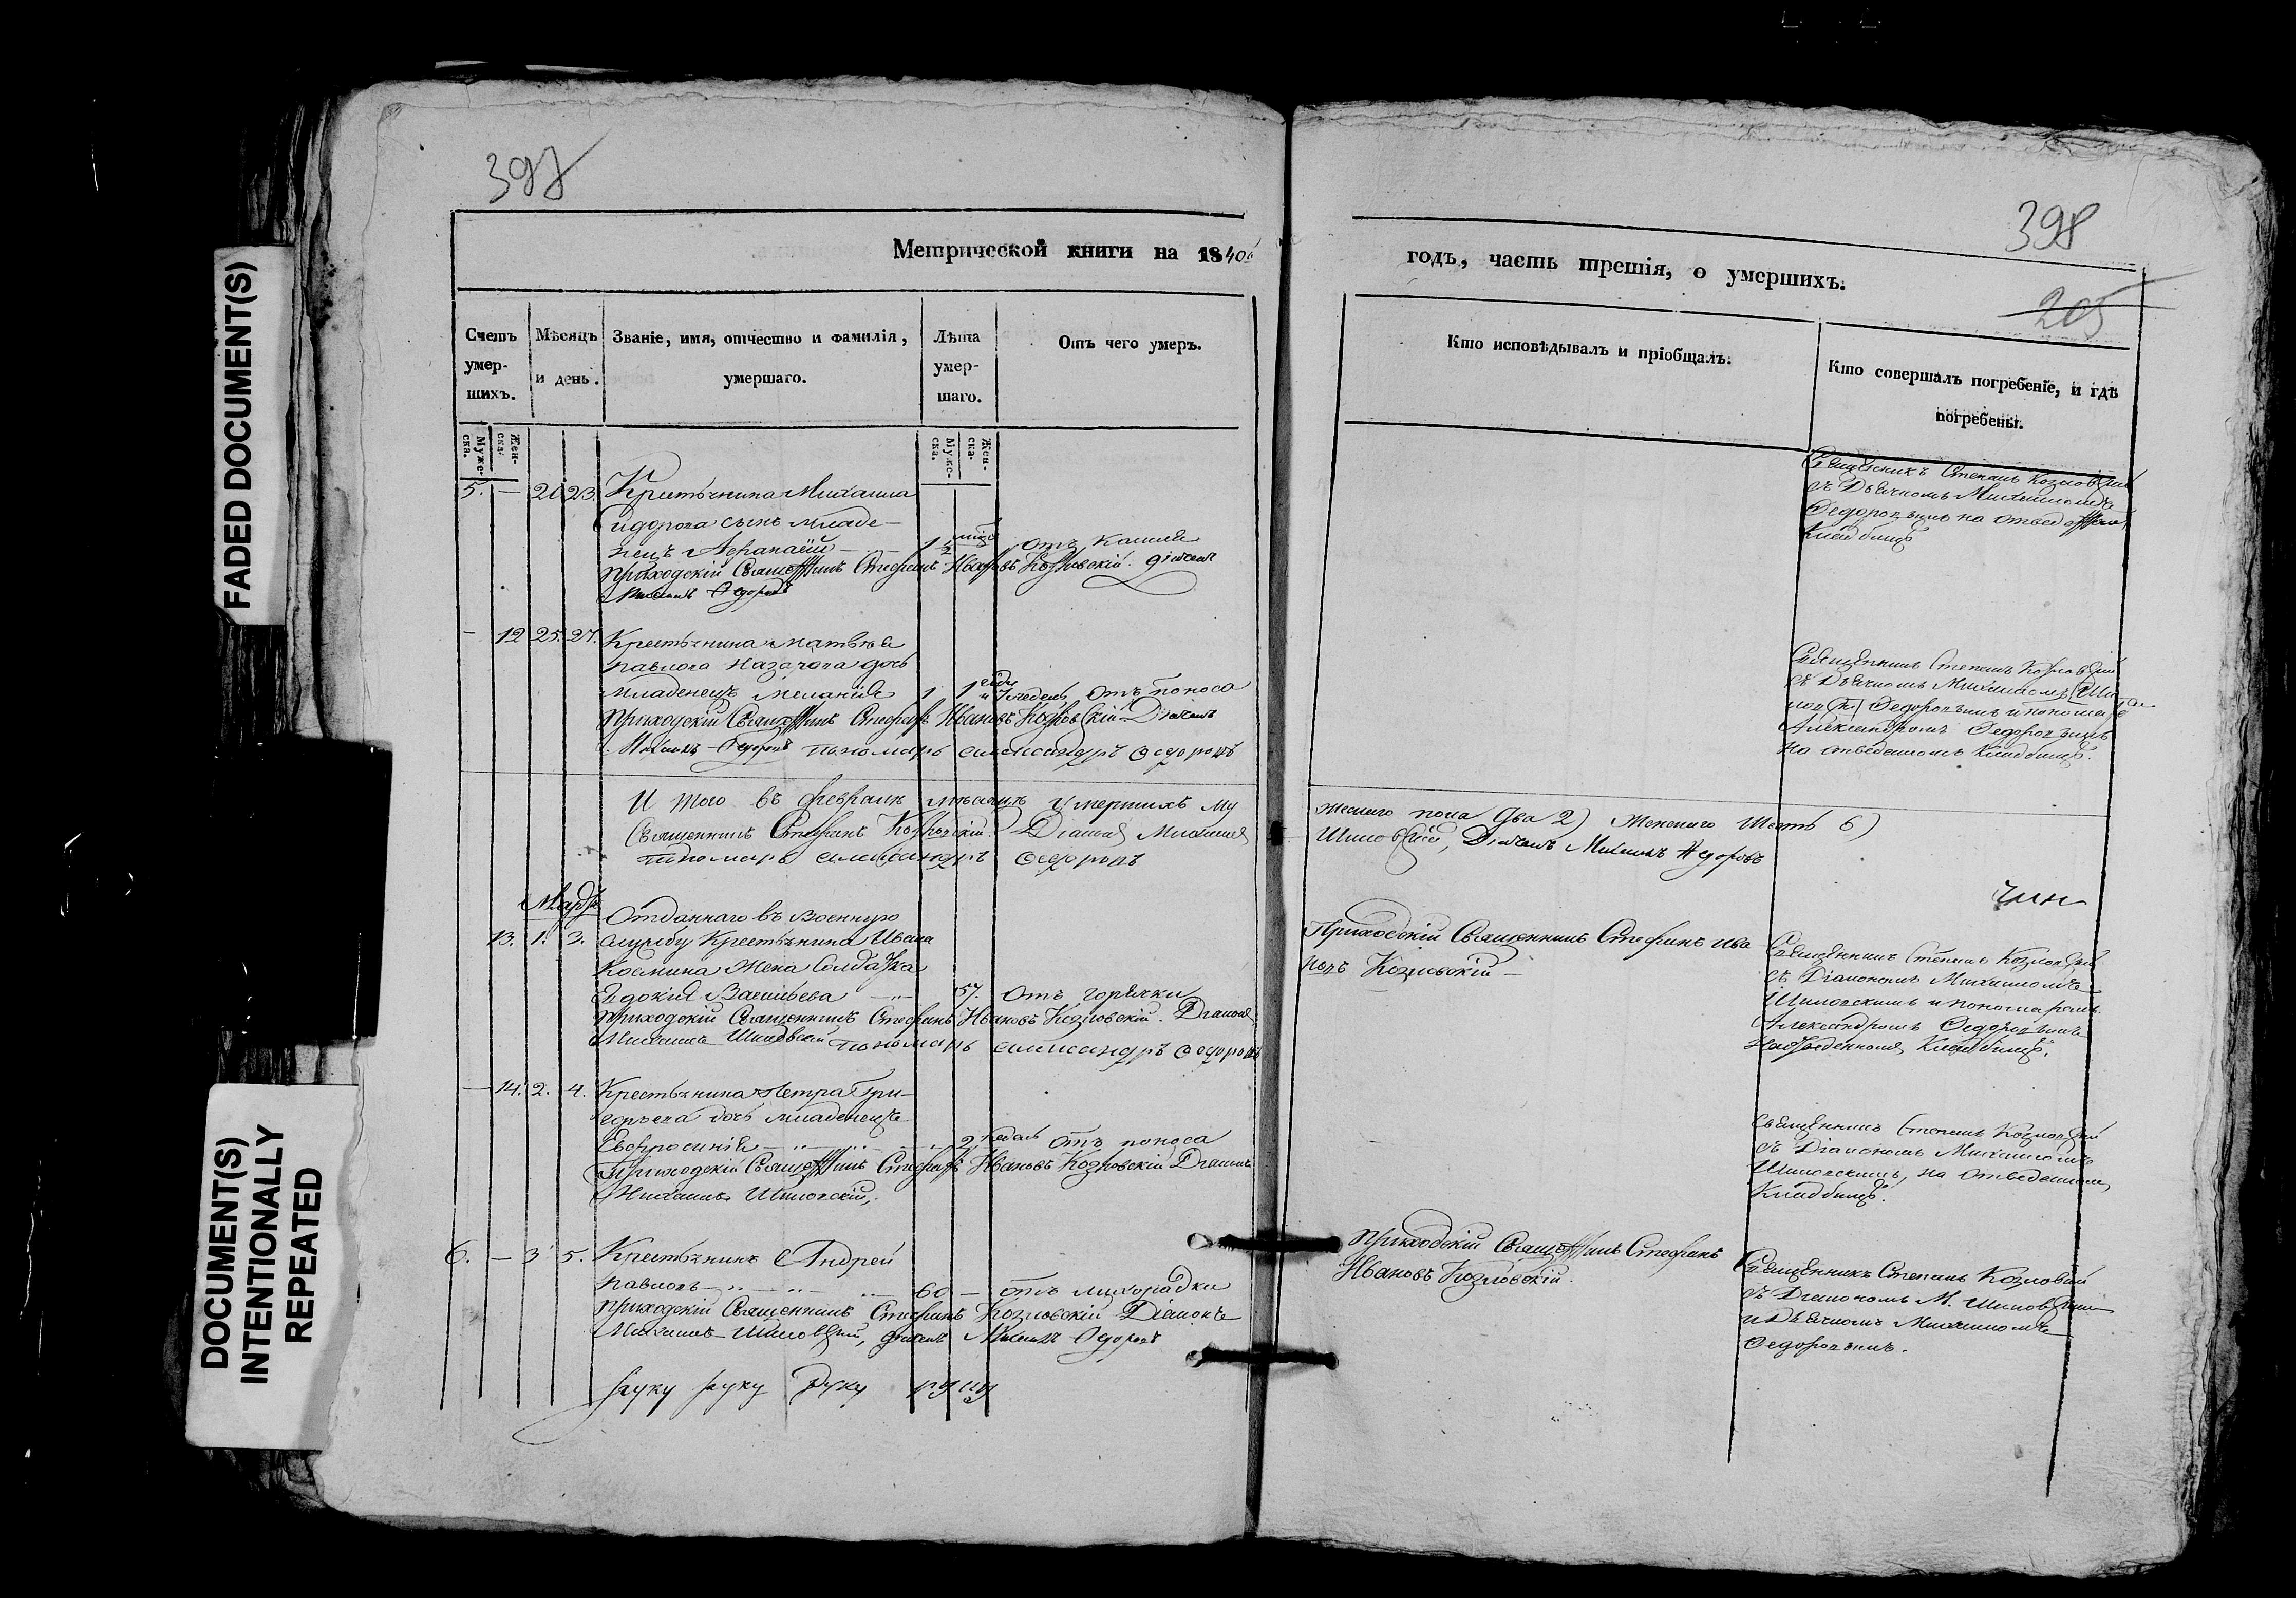 FADED DOCUMENT(S)
DOCUMENT(S)
INTENTIONALLY
REPEATED
397
Метрической книги на 1840й
Счетъ умершихъ.
Мѣсяцъ и день.
Званіе, имя, отчество и фамилія, умершаго.
Лѣта умершаго.
Отъ чего умеръ.
Муже-ска. Жен-ска. Муже-ска. Жен-ска.
5. — 20 23. Крестьянина Михаила
Сидорова сынъ младе-
нецъ Афанасій отъ кашля
Приходскій Священникъ Стефанъ Ивановъ Козловскій. Дьячекъ
Михаилъ Федоровъ
— 12 25. 27. Крестьянина Матвѣя
Павлова Назарова дочь
младенецъ Меланія 1 годъ отъ поноса
Приходскій Священникъ Стефанъ Ивановъ Козловскій Дьячекъ
Михаилъ Федоровъ пономарь Александръ Федоровъ
И того въ февралѣ мѣсяцѣ умершихъ му
Священникъ Стефанъ Козловскій. Діаконъ Михаилъ
пономарь Александръ Федоровъ
Мартъ
Отданнаго въ военную
13. 1. 3. службу Крестьянина Ивана
Космина жена Солдатка
Евдокія Васильева 57. отъ горячки
Приходскій Священникъ Стефанъ Ивановъ Козловскій. Діаконъ
Михаилъ Шиловскій пономарь Александръ Федоровъ
— 14. 2. 4. Крестьянина Петра Гри-
горьева дочь младенецъ
Евфросинія 2 недель отъ поноса
Приходскій Священникъ Стефанъ Ивановъ Козловскій Діаконъ
Михаилъ Шиловскій,
6. — 3 5. Крестьянинъ Андрей
Павловъ 60 — отъ лихорадки
Приходскій Священникъ Стефанъ Козловскій Діаконъ
Михаилъ Шиловскій, дьячекъ Михаилъ Федоровъ
398
205
годъ, часть третія, о умершихъ.
Кто исповѣдывалъ и пріобщалъ.
Кто совершалъ погребеніе, и гдѣ погребены.
Священникъ Степанъ Козловскій
съ Дьячкомъ Михаиломъ
Федоровымъ на отведенномъ
кладбищѣ
Священникъ Степанъ Козловскій
съ Дьячкомъ Михаиломъ
Федоровымъ и пономаремъ
Александромъ Федоровымъ
на отведенномъ кладбищѣ.
жескаго пола два 2) женскаго шесть 6)
Шиловскій, Дьячекъ Михаилъ Федоровъ
Приходскій Священникъ Стефанъ Ива
новъ Козловскій —
Священникъ Степанъ Козловскій
съ Діакономъ Михаиломъ
Шиловскимъ и пономаремъ
Александромъ Федоровымъ
на отведенномъ кладбищѣ.
Священникъ Степанъ Козловскій
съ Діакономъ Михаиломъ
Шиловскимъ, на отведенномъ
кладбищѣ.
Приходскій Священникъ Стефанъ
Ивановъ Козловскій.
Священникъ Степанъ Козловскій
съ Діакономъ М. Шиловскимъ
и Дьячкомъ Михаиломъ
Федоровымъ.